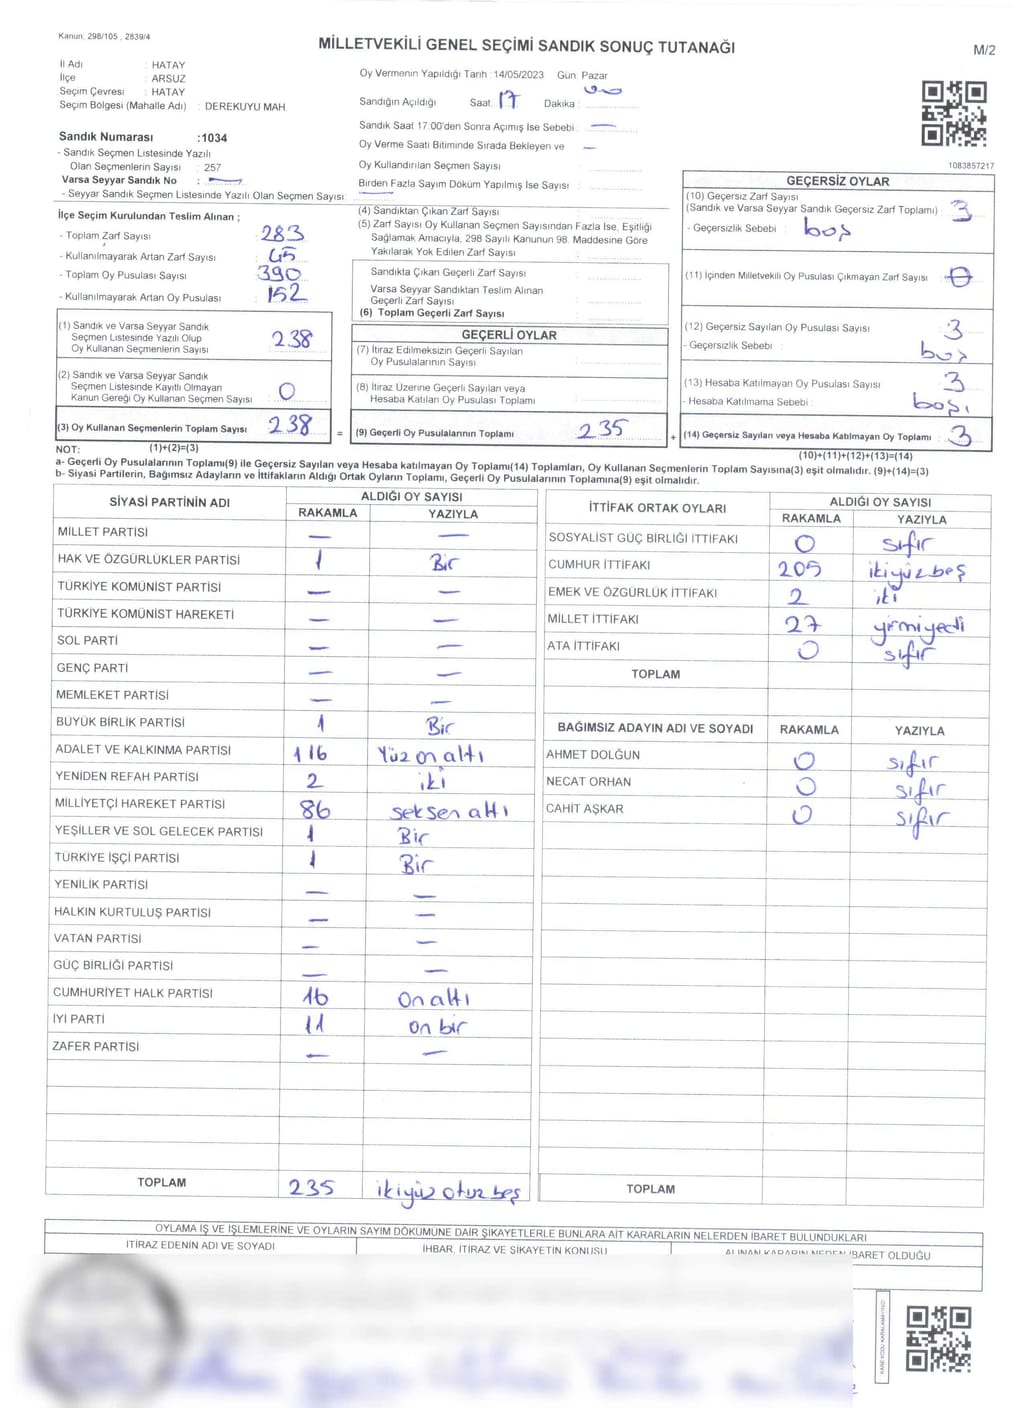 Kanun: 298/105 , 2839/4
MİLLETVEKİLİ GENEL SEÇİMİ SANDIK SONUÇ TUTANAĞI
M/2
İl Adı : HATAY
İlçe : ARSUZ
Seçim Çevresi : HATAY
Seçim Bölgesi (Mahalle Adı) : DEREKUYU MAH.
Oy Vermenin Yapıldığı Tarih :14/05/2023 Gün: Pazar
Sandığın Açıldığı Saat: 17 Dakika :
Sandık Saat 17:00'den Sonra Açımış İse Sebebi : —
Oy Verme Saati Bitiminde Sırada Bekleyen ve —
Oy Kullandırılan Seçmen Sayısı :
Birden Fazla Sayım Döküm Yapılmış İse Sayısı :
Sandık Numarası :1034
- Sandık Seçmen Listesinde Yazılı
Olan Seçmenlerin Sayısı : 257
Varsa Seyyar Sandık No : —
- Seyyar Sandık Seçmen Listesinde Yazılı Olan Seçmen Sayısı: —
1083857217
İlçe Seçim Kurulundan Teslim Alınan ;
- Toplam Zarf Sayısı : 283
- Kullanılmayarak Artan Zarf Sayısı : 45
- Toplam Oy Pusulası Sayısı : 390
- Kullanılmayarak Artan Oy Pusulası : 152
(1) Sandık ve Varsa Seyyar Sandık
Seçmen Listesinde Yazılı Olup
Oy Kullanan Seçmenlerin Sayısı : 238
(2) Sandık ve Varsa Seyyar Sandık
Seçmen Listesinde Kayıtlı Olmayan
Kanun Gereği Oy Kullanan Seçmen Sayısı : 0
(3) Oy Kullanan Seçmenlerin Toplam Sayısı : 238 =
(4) Sandıktan Çıkan Zarf Sayısı :
(5) Zarf Sayısı Oy Kullanan Seçmen Sayısından Fazla İse, Eşitliği
Sağlamak Amacıyla, 298 Sayılı Kanunun 98. Maddesine Göre
Yakılarak Yok Edilen Zarf Sayısı :
Sandıkta Çıkan Geçerli Zarf Sayısı :
Varsa Seyyar Sandıktan Teslim Alınan
Geçerli Zarf Sayısı :
(6) Toplam Geçerli Zarf Sayısı :
GEÇERLİ OYLAR
(7) İtiraz Edilmeksizin Geçerli Sayılan
Oy Pusulalarının Sayısı :
(8) İtiraz Üzerine Geçerli Sayılan veya
Hesaba Katılan Oy Pusulası Toplamı :
(9) Geçerli Oy Pusulalarının Toplamı : 235 +
GEÇERSİZ OYLAR
(10) Geçersiz Zarf Sayısı
(Sandık ve Varsa Seyyar Sandık Geçersiz Zarf Toplamı) : 3
- Geçersizlik Sebebi : boş
(11) İçinden Milletvekili Oy Pusulası Çıkmayan Zarf Sayısı : 0
(12) Geçersiz Sayılan Oy Pusulası Sayısı : 3
- Geçersizlik Sebebi : boş
(13) Hesaba Katılmayan Oy Pusulası Sayısı : 3
- Hesaba Katılmama Sebebi :
(14) Geçersiz Sayılan veya Hesaba Katılmayan Oy Toplamı : 3
NOT: (1)+(2)=(3)
(10)+(11)+(12)+(13)=(14)
a- Geçerli Oy Pusulalarının Toplamı(9) ile Geçersiz Sayılan veya Hesaba katılmayan Oy Toplamı(14) Toplamları, Oy Kullanan Seçmenlerin Toplam Sayısına(3) eşit olmalıdır. (9)+(14)=(3)
b- Siyasi Partilerin, Bağımsız Adayların ve İttifakların Aldığı Ortak Oyların Toplamı, Geçerli Oy Pusulalarının Toplamına(9) eşit olmalıdır.
SİYASİ PARTİNİN ADI ALDIĞI OY SAYISI
RAKAMLA YAZIYLA
MİLLET PARTİSİ — —
HAK VE ÖZGÜRLÜKLER PARTİSİ 1 Bir
TÜRKİYE KOMÜNİST PARTİSİ — —
TÜRKİYE KOMÜNİST HAREKETİ — —
SOL PARTİ — —
GENÇ PARTİ — —
MEMLEKET PARTİSİ — —
BÜYÜK BİRLİK PARTİSİ 1 Bir
ADALET VE KALKINMA PARTİSİ 116 Yüz on altı
YENİDEN REFAH PARTİSİ 2 iki
MİLLİYETÇİ HAREKET PARTİSİ 86 seksen altı
YEŞİLLER VE SOL GELECEK PARTİSİ 1 Bir
TÜRKİYE İŞÇİ PARTİSİ 1 Bir
YENİLİK PARTİSİ — —
HALKIN KURTULUŞ PARTİSİ — —
VATAN PARTİSİ — —
GÜÇ BİRLİĞİ PARTİSİ — —
CUMHURİYET HALK PARTİSİ 16 On altı
İYİ PARTİ 11 on bir
ZAFER PARTİSİ — —
TOPLAM 235 ikiyüz otuz beş
İTTİFAK ORTAK OYLARI ALDIĞI OY SAYISI
RAKAMLA YAZIYLA
SOSYALİST GÜÇ BİRLİĞİ İTTİFAKI 0 sıfır
CUMHUR İTTİFAKI 205 ikiyüz beş
EMEK VE ÖZGÜRLÜK İTTİFAKI 2 iki
MİLLET İTTİFAKI 27 yirmiyedi
ATA İTTİFAKI 0 sıfır
TOPLAM
BAĞIMSIZ ADAYIN ADI VE SOYADI RAKAMLA YAZIYLA
AHMET DOLĞUN 0 sıfır
NECAT ORHAN 0 sıfır
CAHİT AŞKAR 0 sıfır
TOPLAM
OYLAMA İŞ VE İŞLEMLERİNE VE OYLARIN SAYIM DÖKÜMÜNE DAİR ŞİKAYETLERLE BUNLARA AİT KARARLARIN NELERDEN İBARET BULUNDUKLARI
İTİRAZ EDENİN ADI VE SOYADI İHBAR, İTİRAZ VE ŞİKAYETİN KONUSU ALINAN KARARIN NEDEN İBARET OLDUĞU